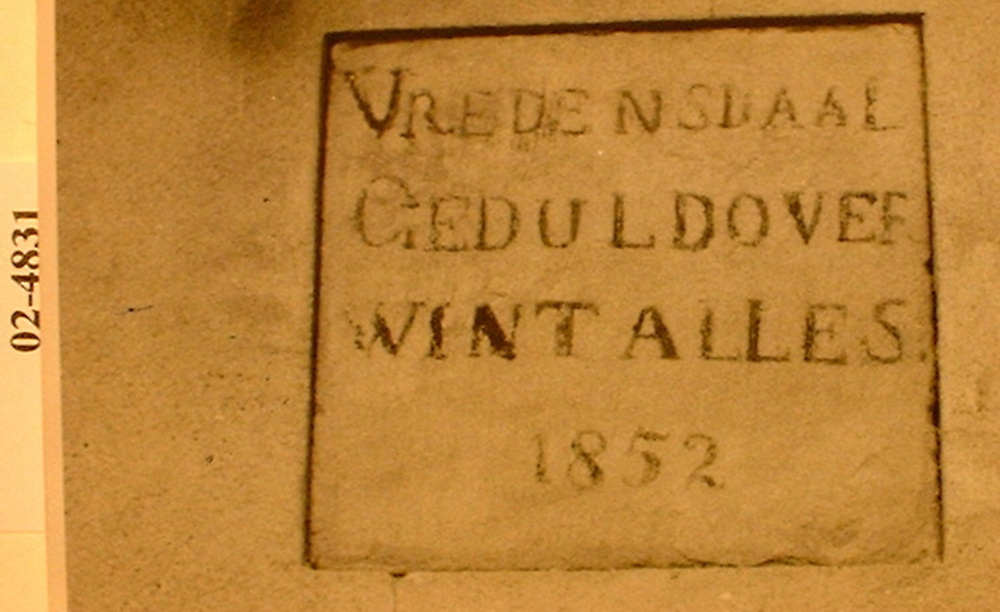 VREDENSDAAL
GEDULDOVER
WINT ALLES.
1852
02-4831